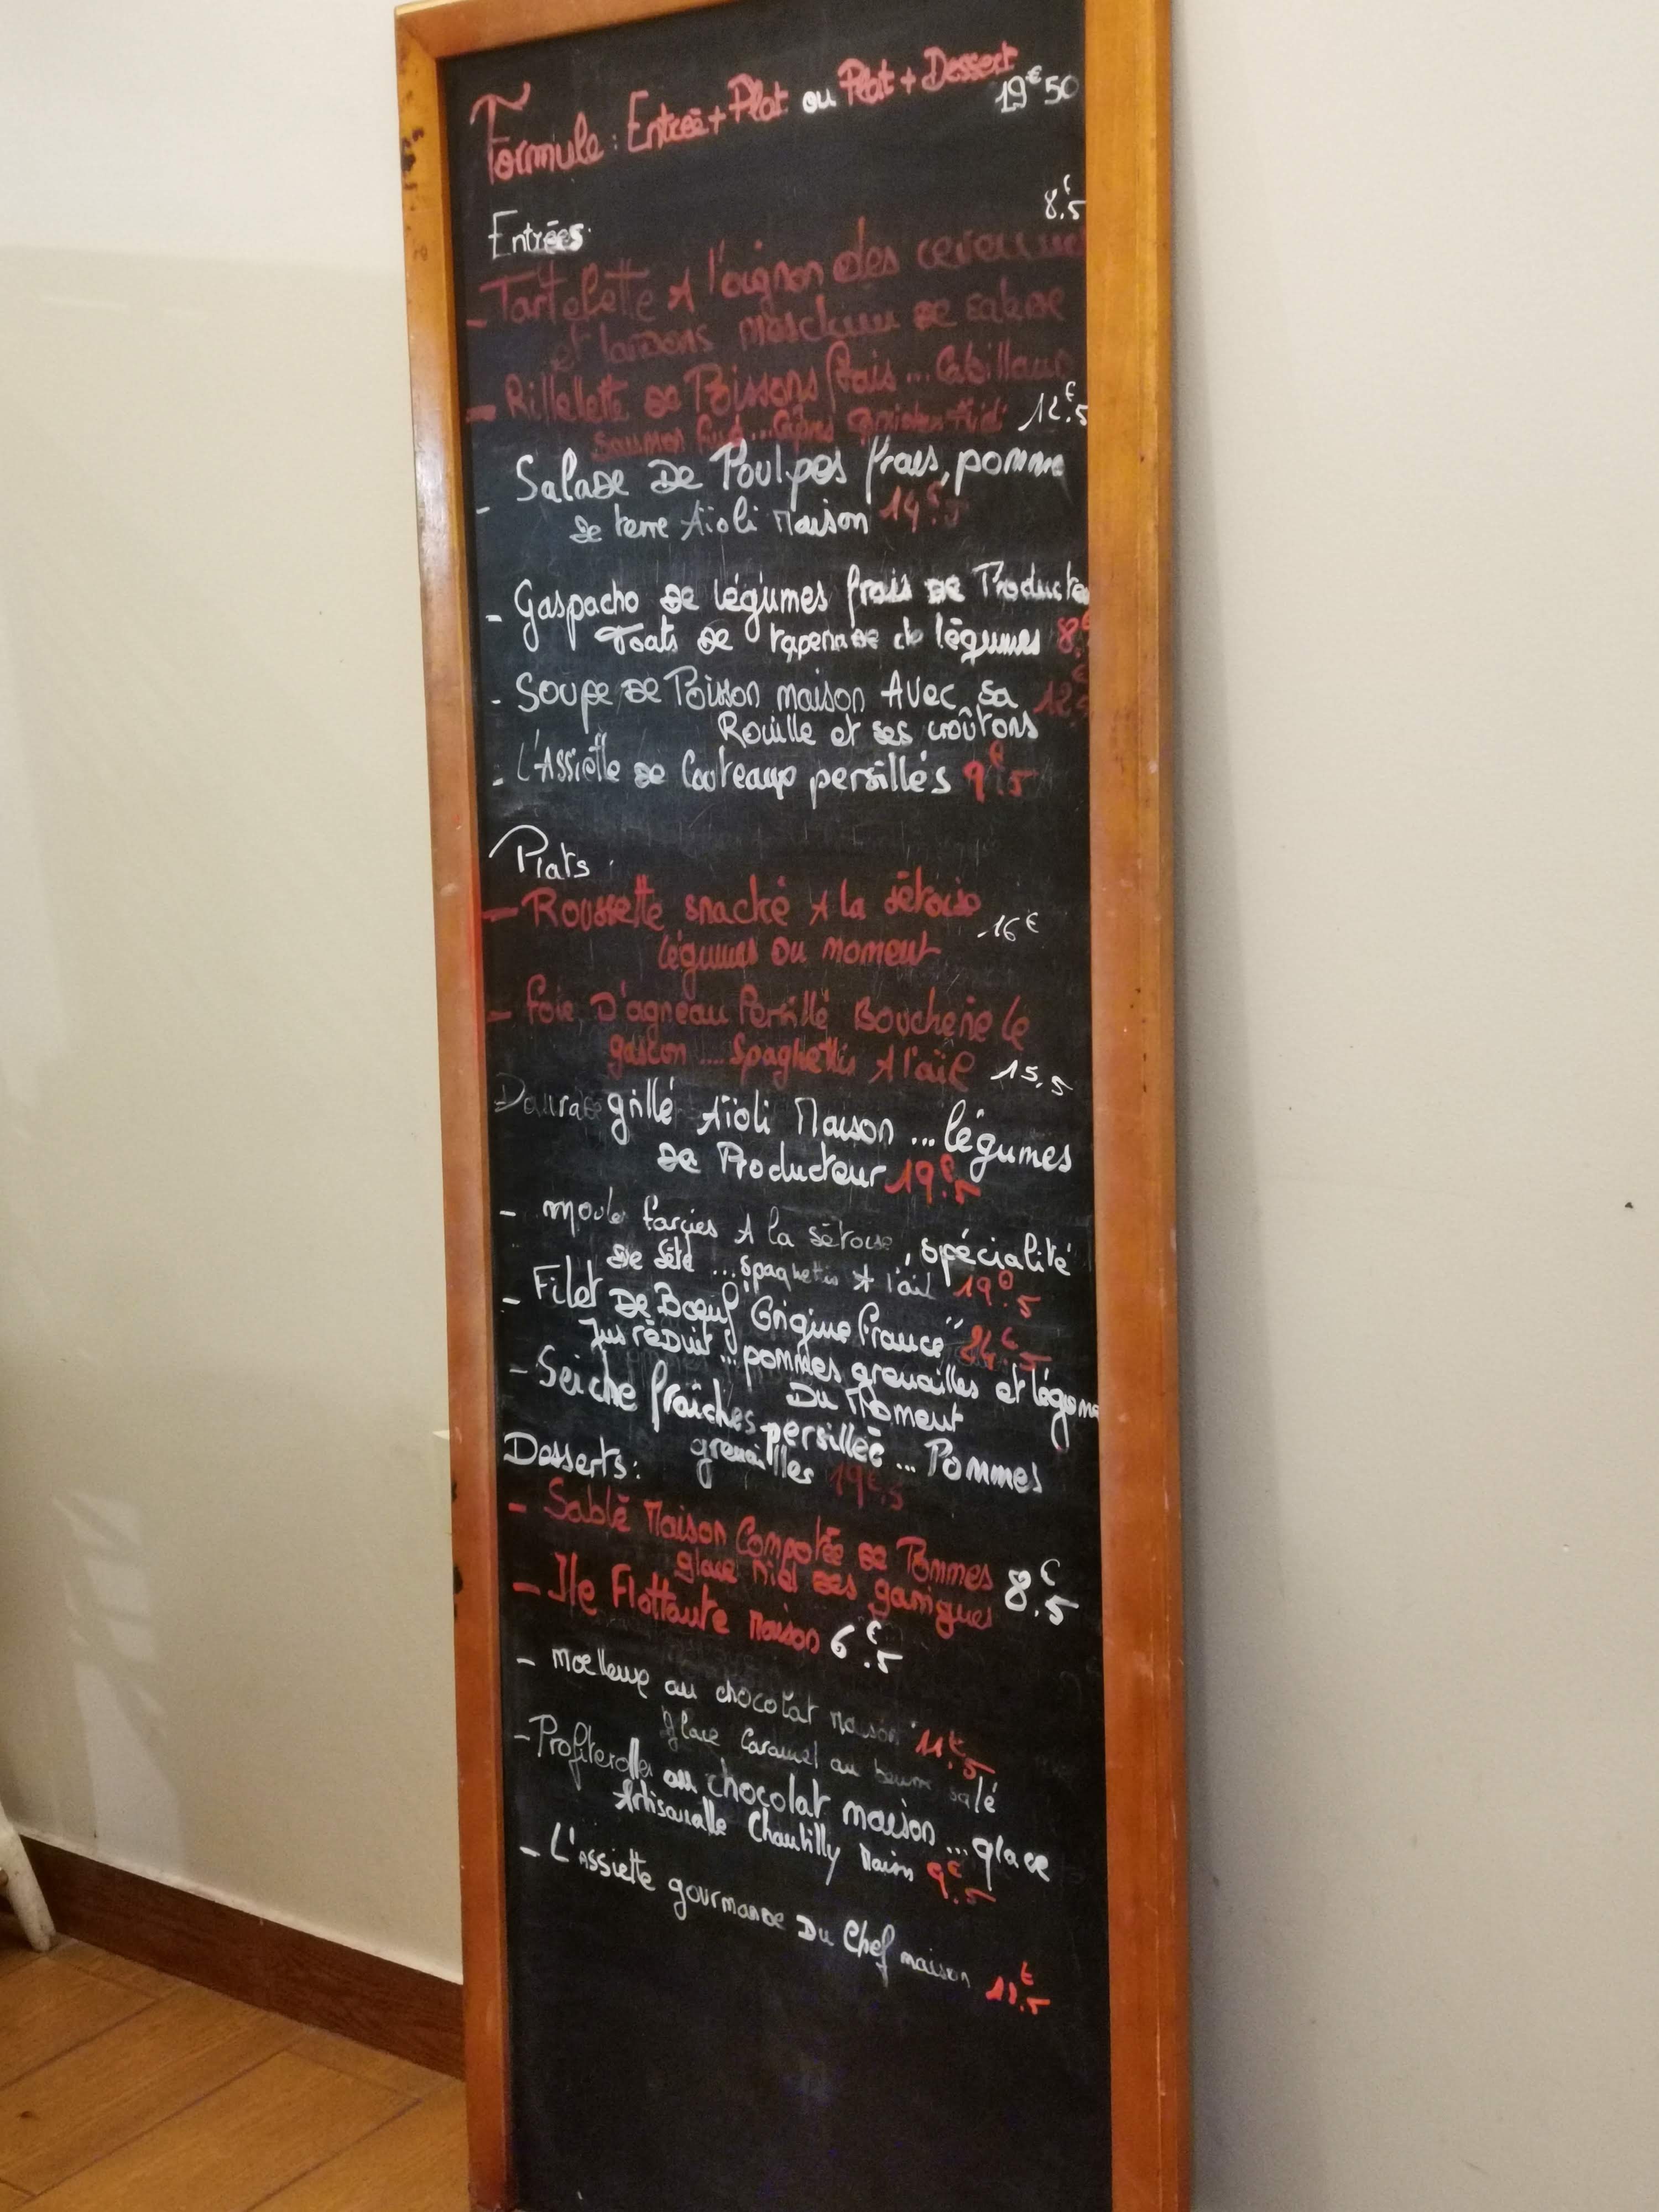 Formule : Entrée + Plat ou Plat + Dessert
19€50
Entrées
8€.5
- Tartelette A l'oignon des
et lardons
- Rillette de Poissons frais ... Cabillaud
Saumon 12€.5
- Salade De Poulpes frais, pomme
de terre Aïoli Maison 14€.5
- Gaspacho de légumes frais de Producteu
Toats de tapenade de légumes 8.€
- Soupe de Poisson maison Avec sa 12€.5
Rouille et ses croûtons
- L'Assiette de Couteaux persillés 9€.5
Plats :
- Roussette snacké A la sétoise 16€
légumes Du moment
- foie D'agneau Persillé Boucherie le
gascon .... Spaghettis A l'ail 15,5
Daurade grillé Aïoli Maison ... légumes
de Producteur 19€.5
- moule farçies A la sétoise, spécialité
de sète ... spaghettis A l'ail 19€.5
- Filet De Bœuf "Origine France" 24€.5
Jus réduit ... pommes grenailles et légume
Du Moment
- Seiche fraîches persilleé ... Pommes
grenailles 19€.5
Desserts :
- Sablé Maison Compotée de Pommes
glace miel des garrigues 8€.5
- Ile Flottante Maison 6€.5
- Moelleux au chocolat maison 11€.5
glace Caramel au beurre salé
- Profiterolles au chocolat maison ... glace
Artisanalle Chantilly Maison 9€.5
- L'Assiette gourmande Du Chef maison
€.5